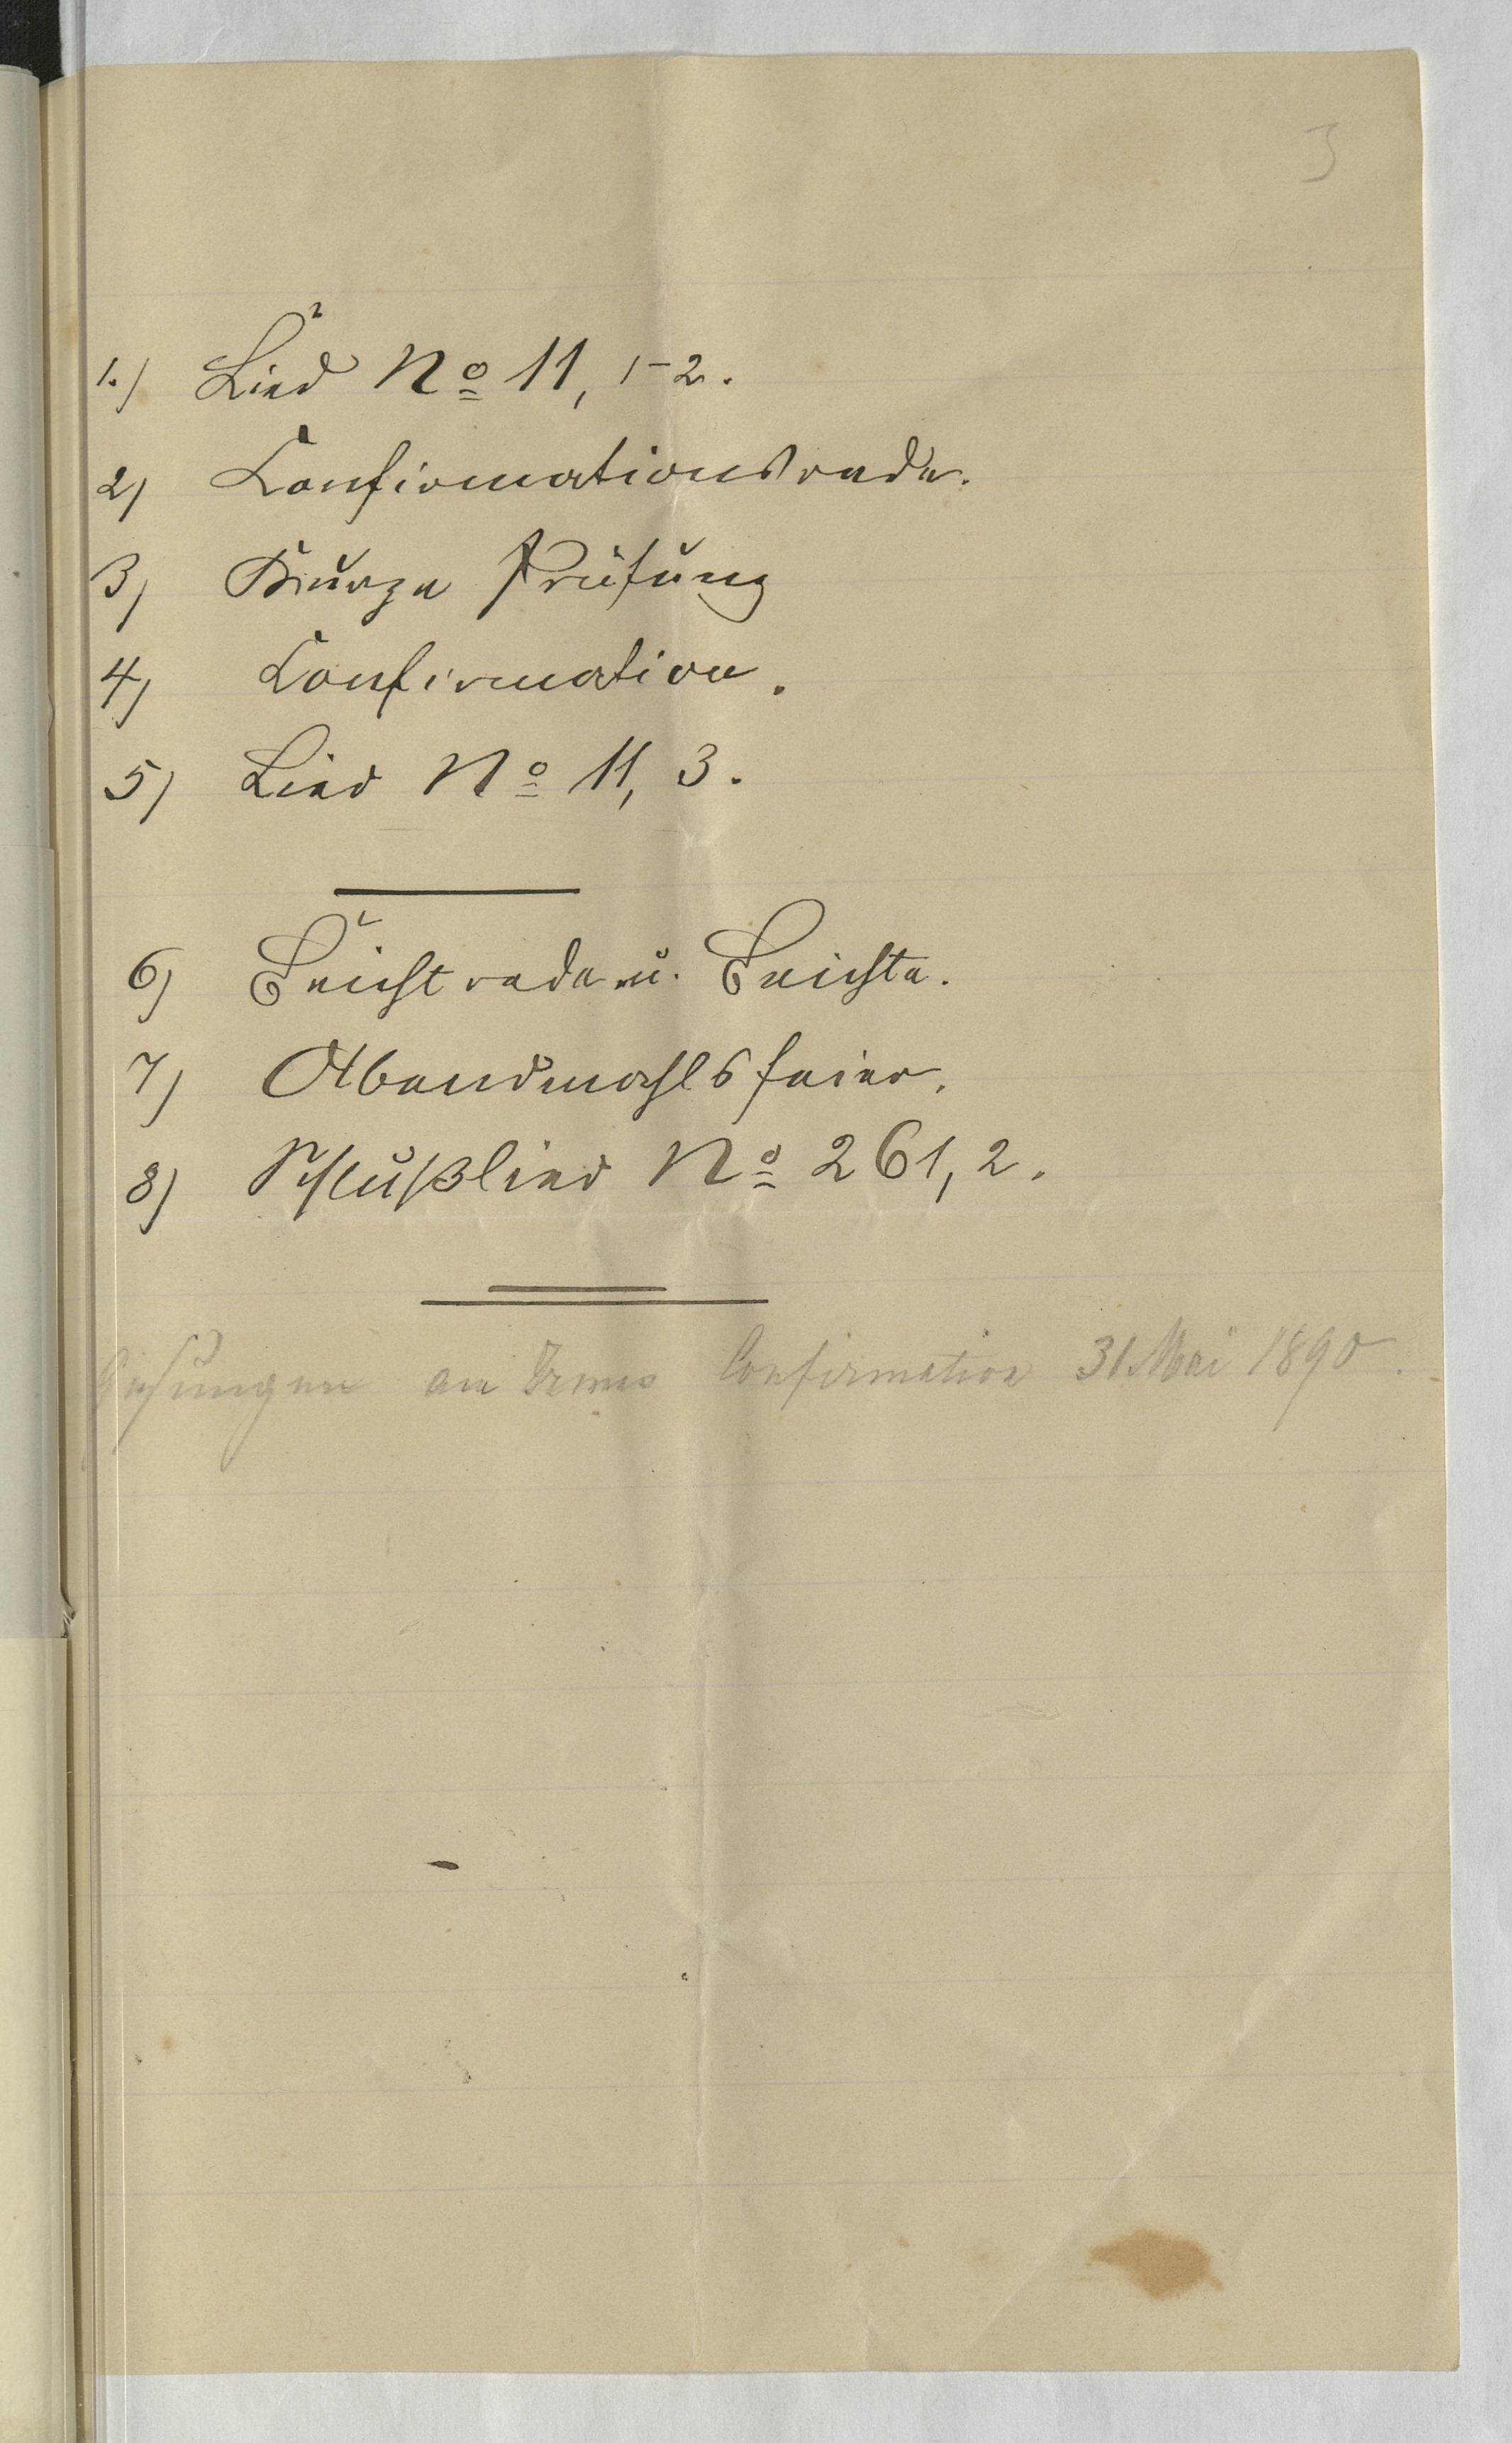 3
1.) Lied No 11, 1-2.
2) Confirmationsrede.
3) Kurze Prüfung
4) Confirmation.
5) Lied No 11, 3.
6) Beichtrede u. Beichte.
7) Abendmahlsfeier.
8) Schlußlied No 261, 2.
Gesungen an Irmas Confirmation 31. Mai 1890.